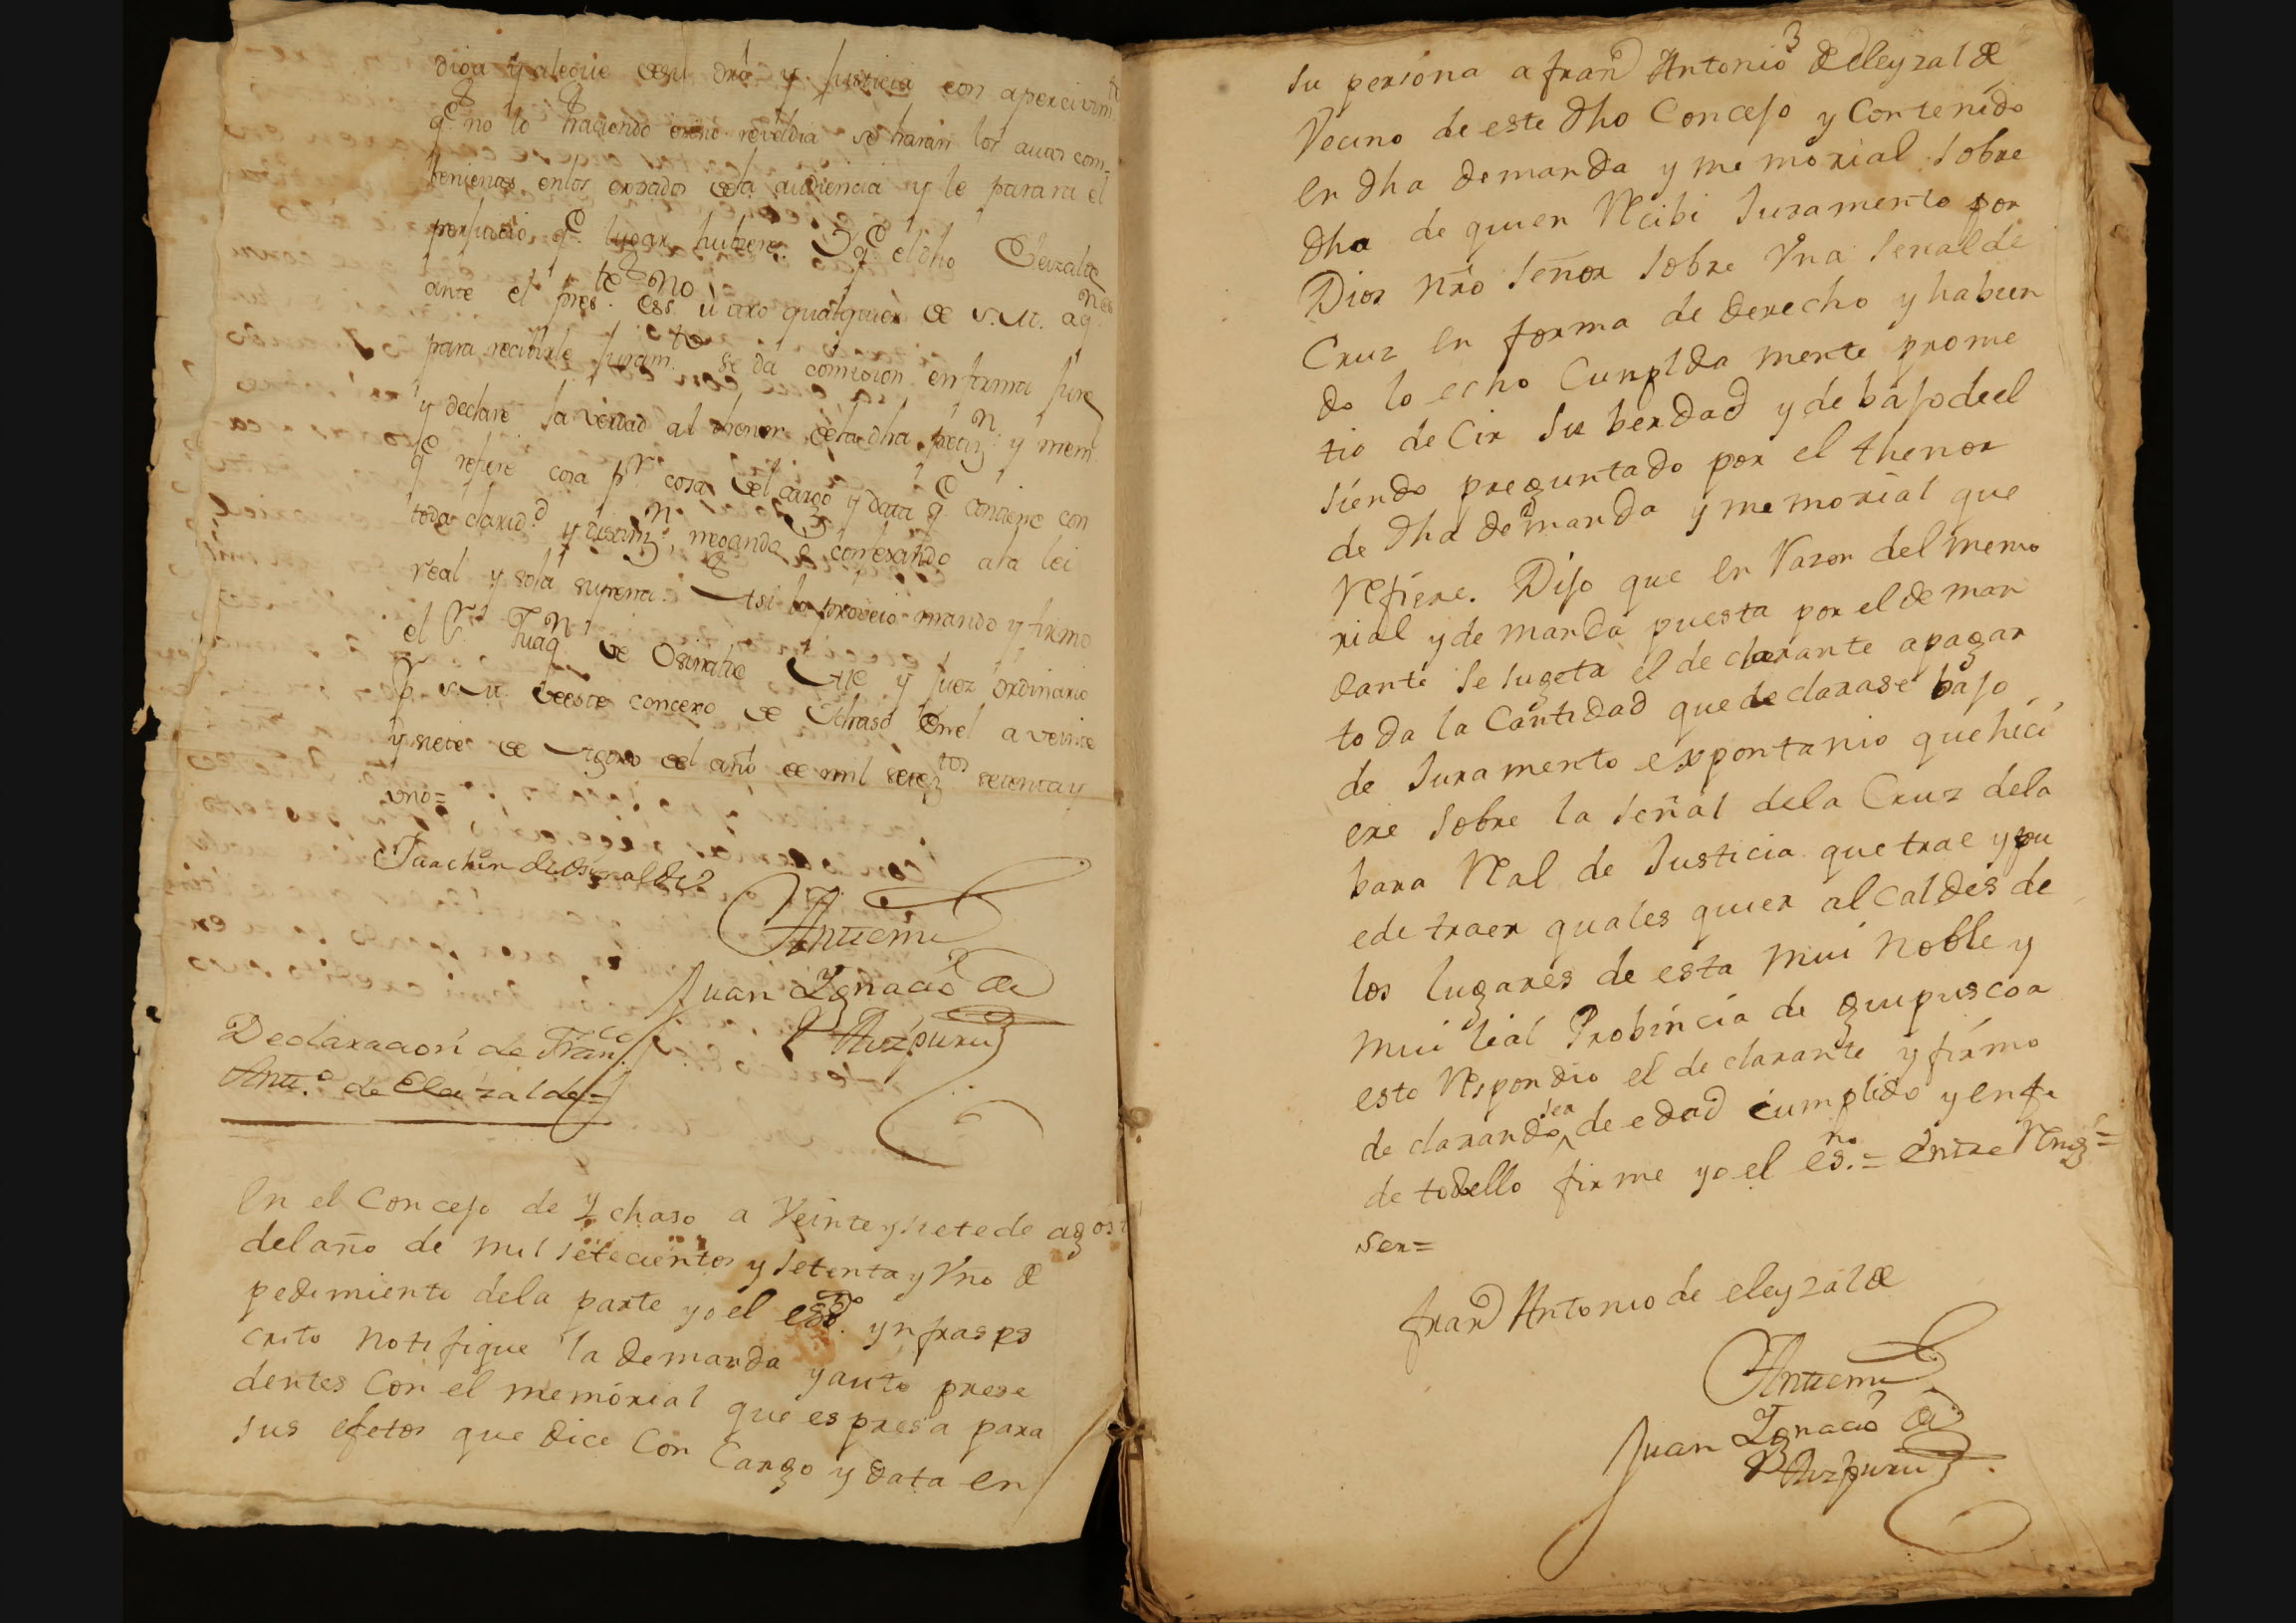 diga y alegue de su dro y Justicia con apercivimto
qe no lo haciendo en su reveldia se haran los autos com-
benientes en los estrados de la audiencia y le parara el
perjuicio qe lugar hubiere. Y qe el dho Eleizalde
ante el preste essno u otro qualquiera de S.M. aqnes
para recivirle Juramto se da comision en forma Jure
y declare la verdad al thenor de la dha petizn y mem.
qe refiere cosa pr cosa del cargo y data qe contiene con
toda claridd y distinzn, negando o confesando a la lei
real y sola su pena. Asi lo proveio mando y firmo
el Sr Juaqn de Osinalde Alle y Juez ordinario
pr S.M. de este concexo de Ichaso En el a veinte
y siete de Agosto del año de mil seteztos setenta y
uno=
Juachin de Osinalde
Antemi
Juan Ignacio de
Aizpuru
Declaracion de Franco
Anto. de Eleizalde=
En el Concejo de Ychaso a Veinte y siete de agosto
del año de mil setecientos y setenta y Uno de
pedimiento dela parte yo el essno. ynfraes
crito notifique la demanda y auto prese
dentes Con el memorial que espresa para
sus efetos que dice Con Cargo y data en
3
su persona a franco Antonio de Eleyzalde
Vecino de este dho Concejo y Contenido
en dha demanda y memorial sobre
dha de quien Recibi Juramento por
Dios nro Señor sobre Una señal de
Cruz en forma de derecho y habien
do lo echo Cunplda mente prome
tio de Cir su berdad y de bajo de el
siendo preguntado por el thenor
de dha demanda y memorial que
Refiere. Dijo que en Razon del memo
rial y demanda puesta por el deman
dante se sugeta el declarante a pagar
toda la Cantidad que declarase bajo
de Juramento espontanio que hici
ere sobre la señal dela Cruz dela
bara Real de Justicia que trae y pu
ede traer quales quier alCaldes de
los lugares de esta mui noble y
mui leal Probincia de guipuscoa
esto Respondio el declarante y firmo
declarando ser de edad cumplido y en fe
de todello firme yo el esno.= Entre Rengs=
ser=
franco Antonio de eleyzalde
Antemi
Juan Ignacio de
Aizpuru